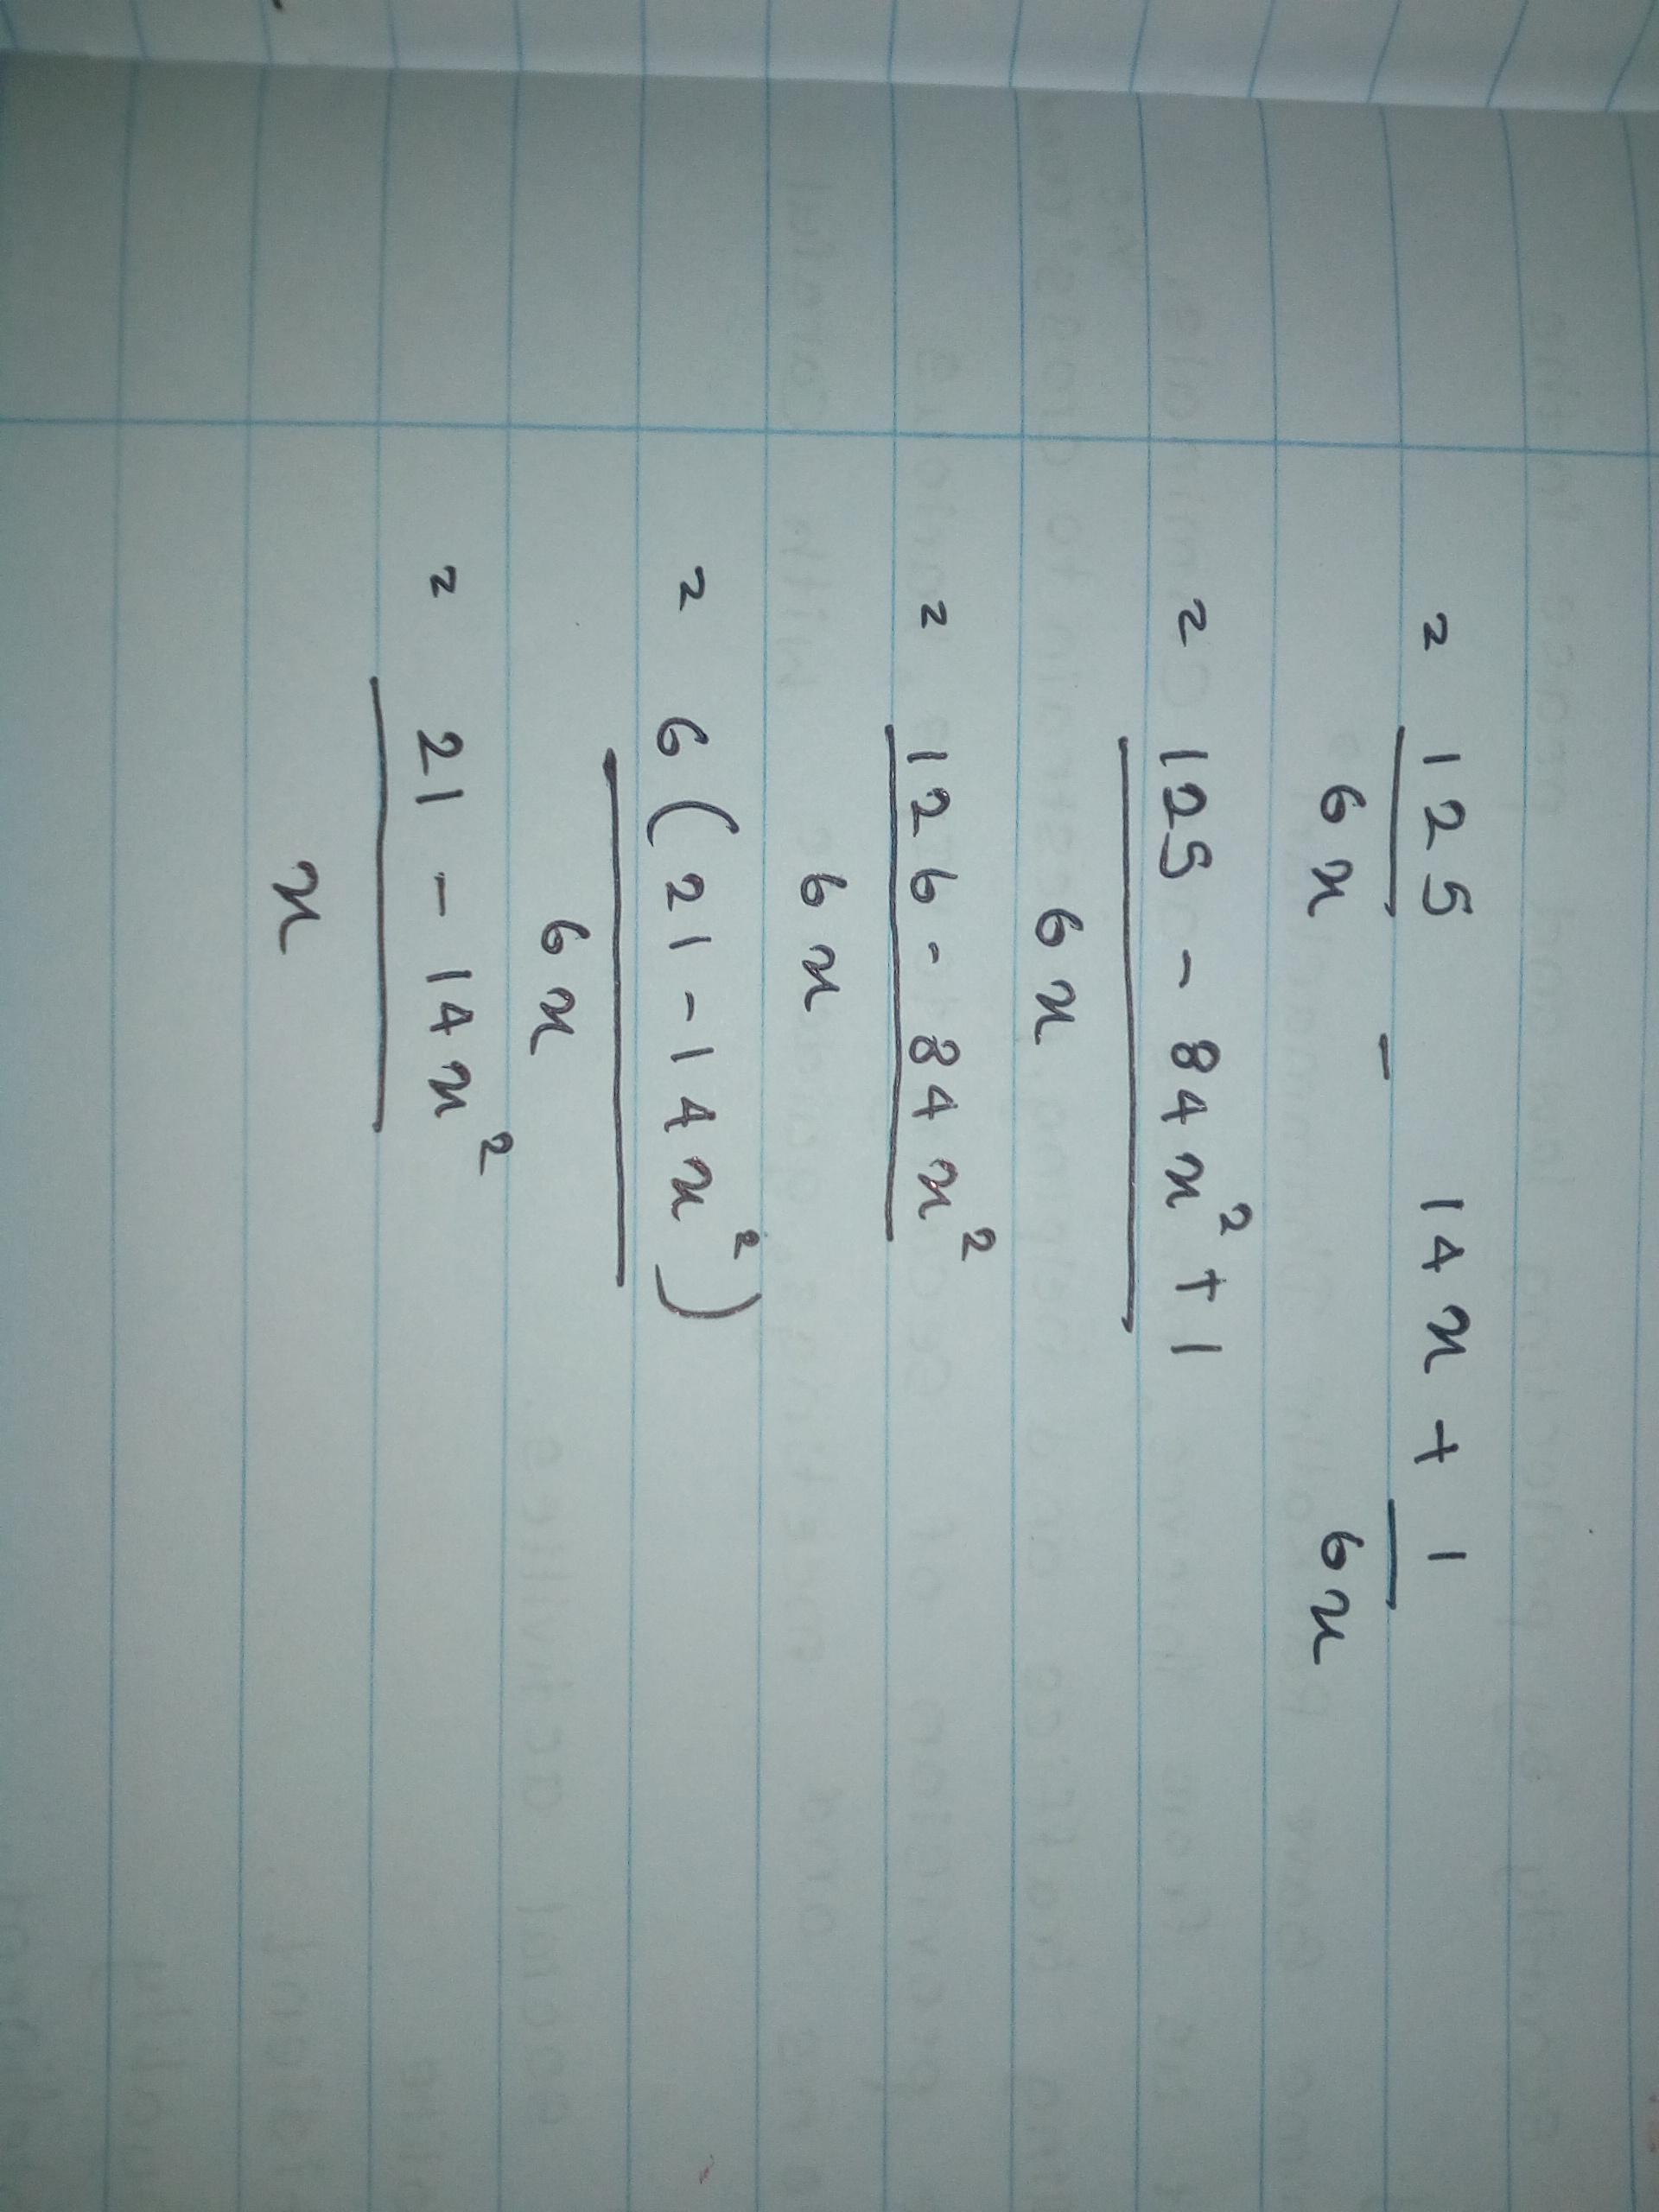 = 125/6x - 14x + 1/6x
= 125 - 84x² + 1
6x
= 126 - 84x²
6x
= 6(21 - 14x²)
6x
= 21 - 14x²
x